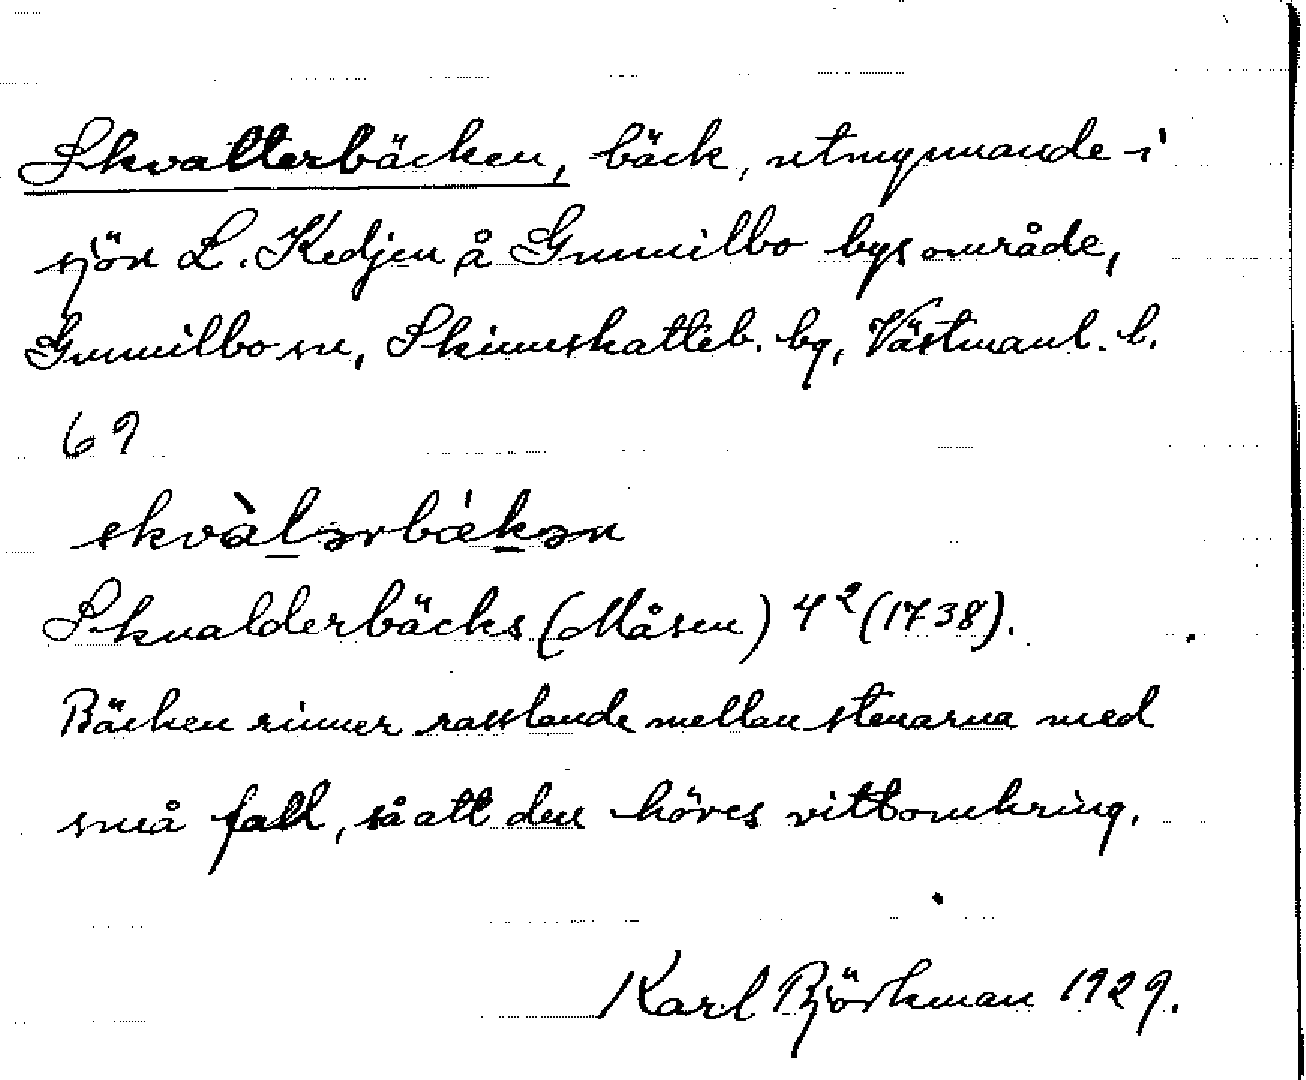 Skvalterbäcken, bäck, utmynnande i
sjön L. Kedjen å Gunnilbo bys område,
Gunnilbo sn, Skinnskatteb. bg, Västmanl. l.
69
skvàltərbäkən
Skualderbäcks (Måsen) 4² (1738).
Bäcken rinner rasslande mellan stenarna med
små fall, så att den höres vittomkring.
Karl Björkman 1929.